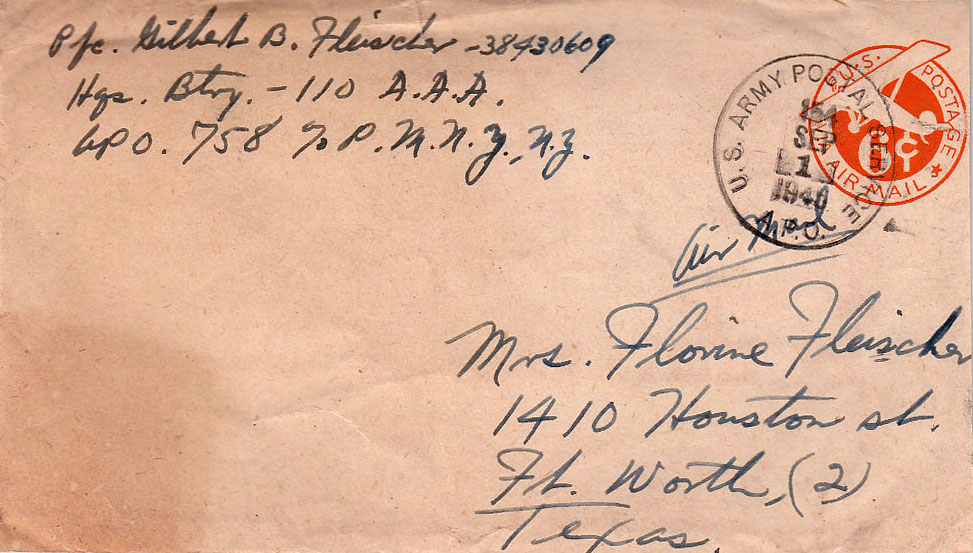 Pfc. Gilbert B. Fleischer - 38430609
Hqs. Btry. - 110 A.A.A.
APO. 758 % P.M. N.Y., N.Y.
U.S. ARMY POSTAL SERVICE
SEP
1
A.P.O.
U.S. POSTAGE
6¢
VIA AIR MAIL
Air Mail
Mrs. Florine Fleischer
1410 Houston st.
Ft. Worth, (2)
Texas.